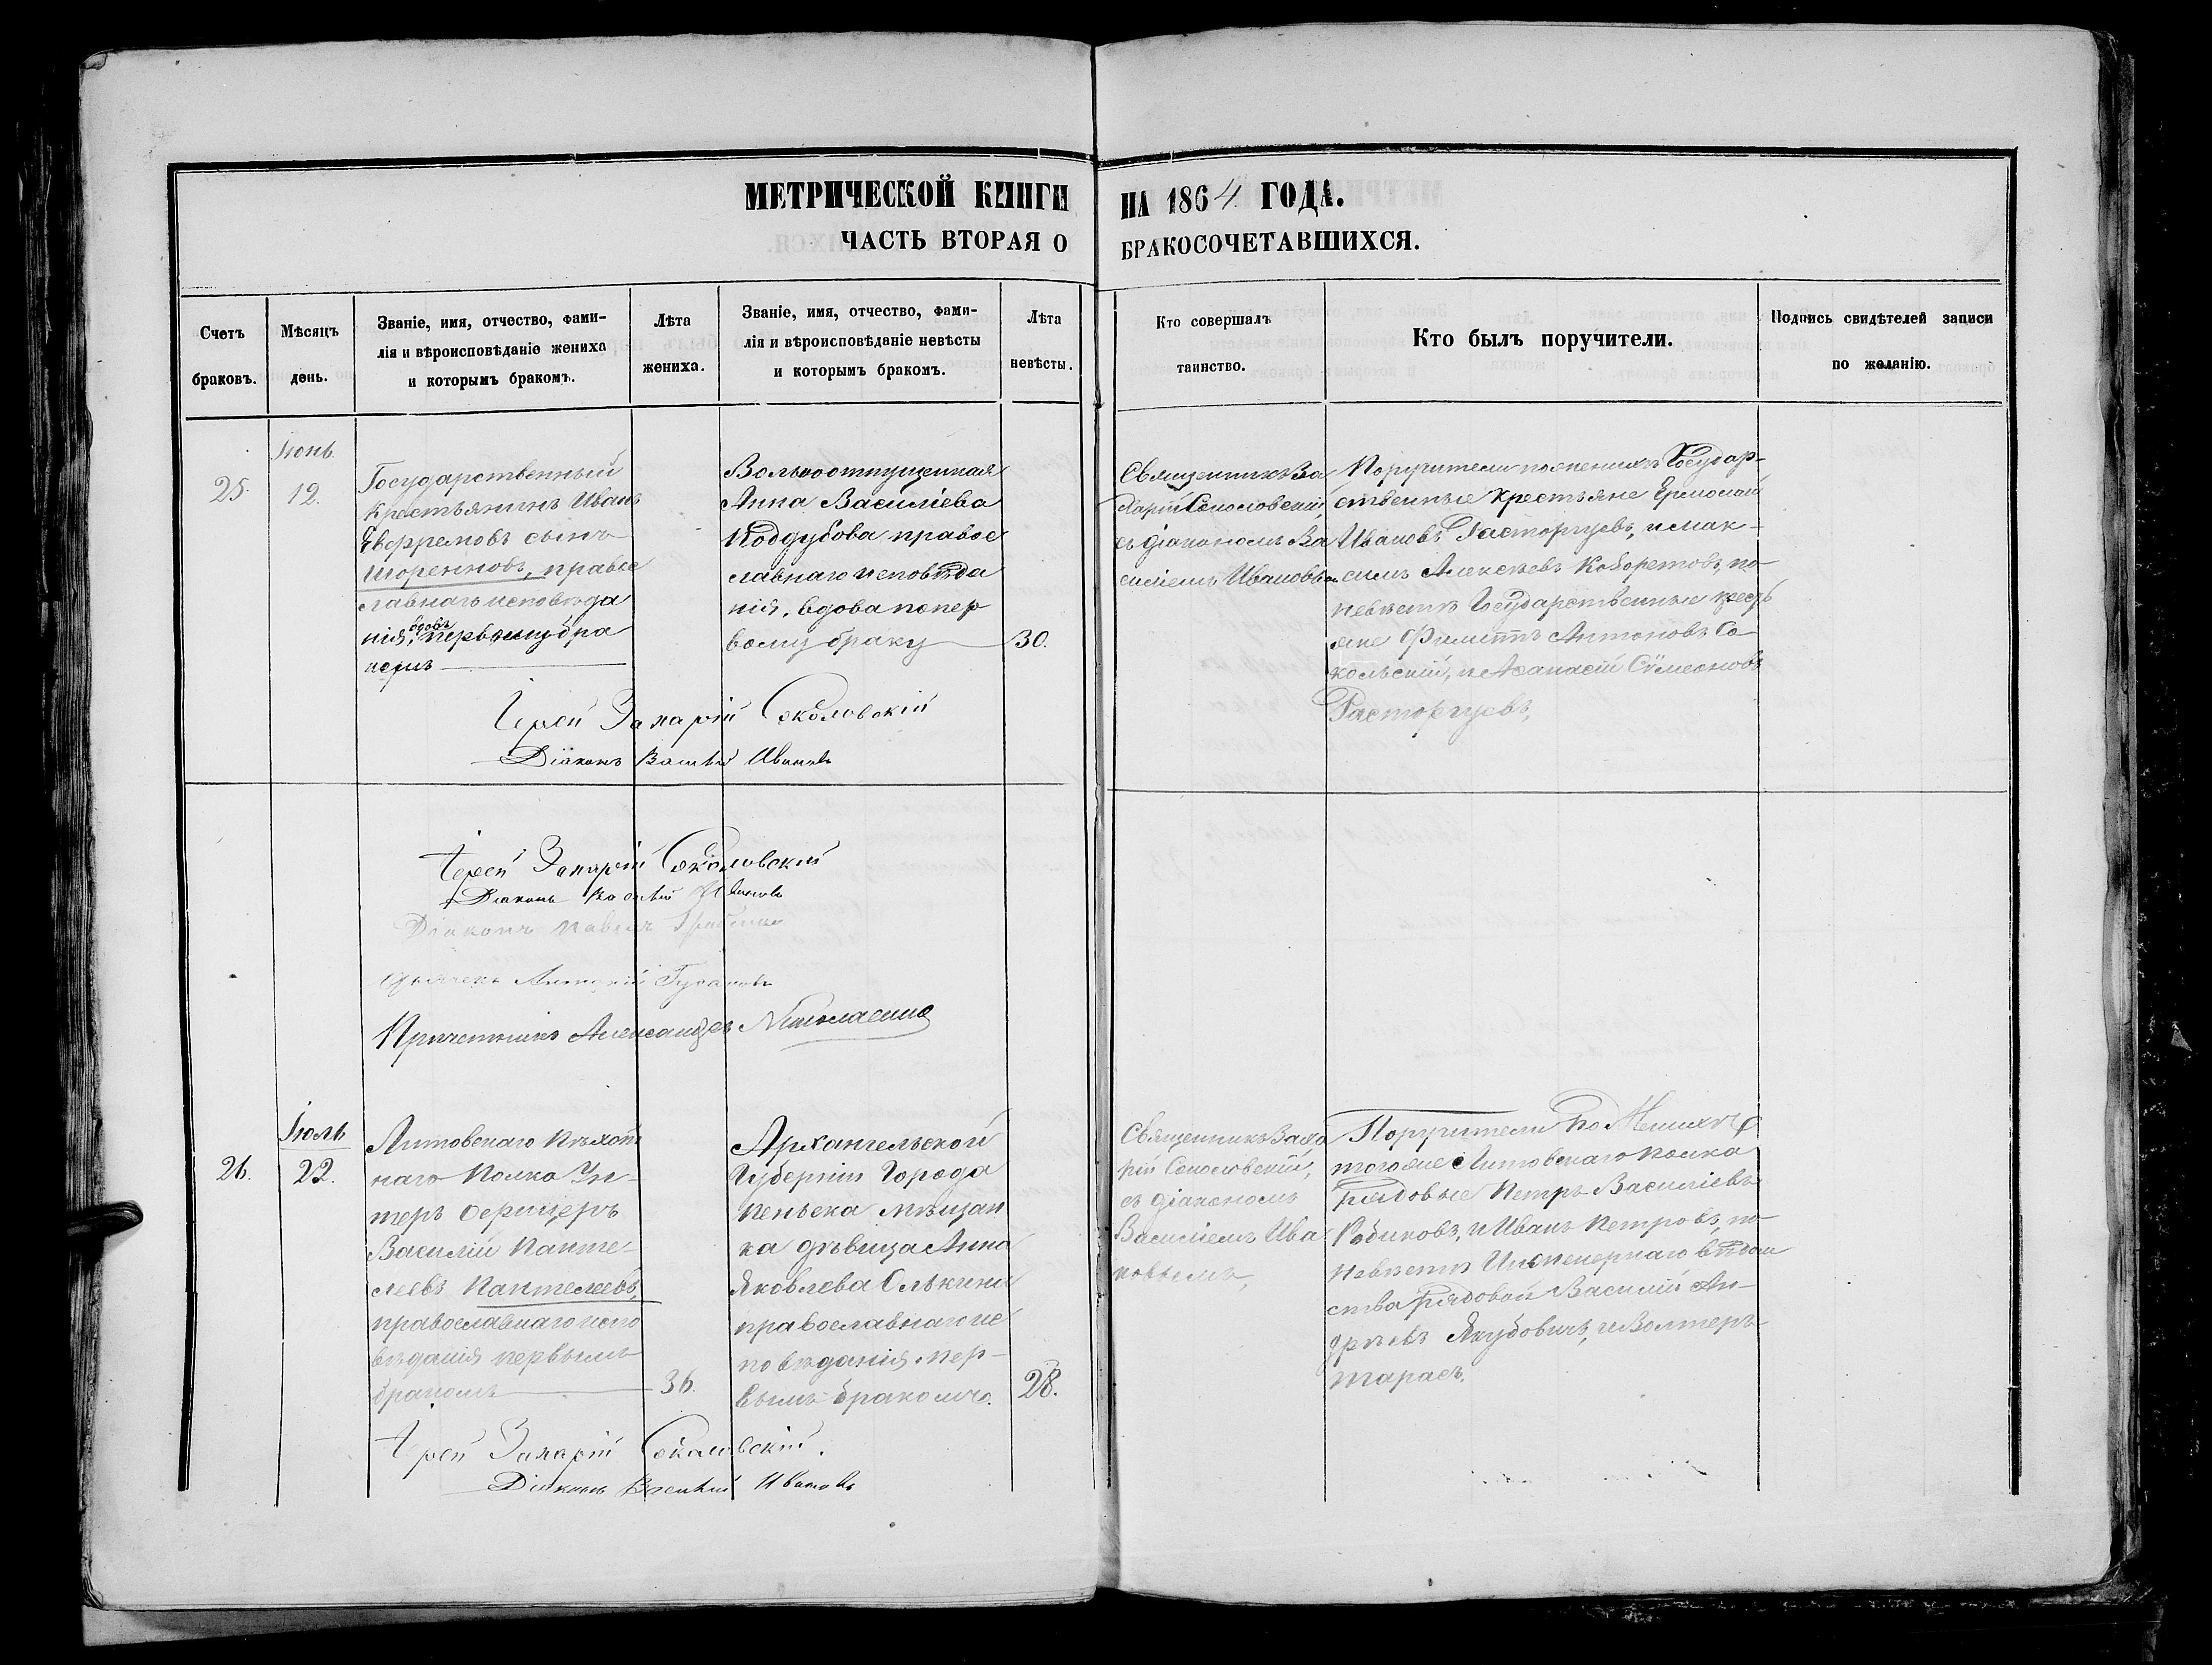 МЕТРИЧЕСКОЙ КНИГИ НА 1864 ГОДА.
ЧАСТЬ ВТОРАЯ О БРАКОСОЧЕТАВШИХСЯ.
Счетъ браковъ.
Мѣсяцъ день.
Званіе, имя, отчество, фами-
лія и вѣроисповѣданіе жениха
и которымъ бракомъ.
Лѣта жениха.
Званіе, имя, отчество, фами-
лія и вѣроисповѣданіе невѣсты
и которымъ бракомъ.
Лѣта невѣсты.
Кто совершалъ таинство.
Кто былъ поручители.
Подпись свидѣтелей записи
по желанію.
25.
Іюнь
12.
Государственный
крестьянинъ Иванъ
Евфремовъ сынъ
правос
лавнаго исповѣда
нія, вдовъ первымъ бра
комъ
Вольноотпущенная
Анна Василіева
Поддубова правос
лавнаго исповѣда
нія, вдова по пер
вому браку
30.
Священникъ За
харій Соколовскій,
съ діакономъ Ва
силіемъ Ивановым
Поручители по женихѣ Государ-
ственные крестьяне Ермолай
Ивановъ Расторгуевъ, и Мак-
симъ Алексѣевъ по
невѣстѣ Государственные крестъ
яне Филиппъ Антоновъ Со
кольскій, и Аѳанасій Сѵмеоновъ
Расторгуевъ,
Іерей Захарій Соколовскій
Діаконъ Василій Ивановъ
Іерей Захарій Соколовскій
Діаконъ Василій Ивановъ
Діаконъ Павелъ
Дьячекъ
Причетникъ Александръ
26.
Іюль
22.
Литовскаго Пѣхот
наго Полка Ун-
теръ Офицеръ
Василій Панте-
леевъ Пантелеевъ,
православнаго испо
вѣданія первымъ
бракомъ
36.
Архангельской
Губерніи Города
мѣщан
ка дѣвица Анна
Яковлева Елькина
православнаго ис
повѣданія пер-
вымъ бракомъ.
28.
Священникъ Заха
рій Соколовскій,
съ діакономъ
Василіемъ Ива
новымъ,
Поручители По Женихѣ
тогоже Литовскаго полка
рядовые Петръ Василіевъ
Родиковъ, и Иванъ Петровъ, по
невѣстѣ Инженернаго вѣдом
ства рядовой Василій Ан-
дреевъ Якубовичъ, и Волтеръ
тарасъ.
Іерей Захарій Соколовскій.
Діаконъ Василій Ивановъ